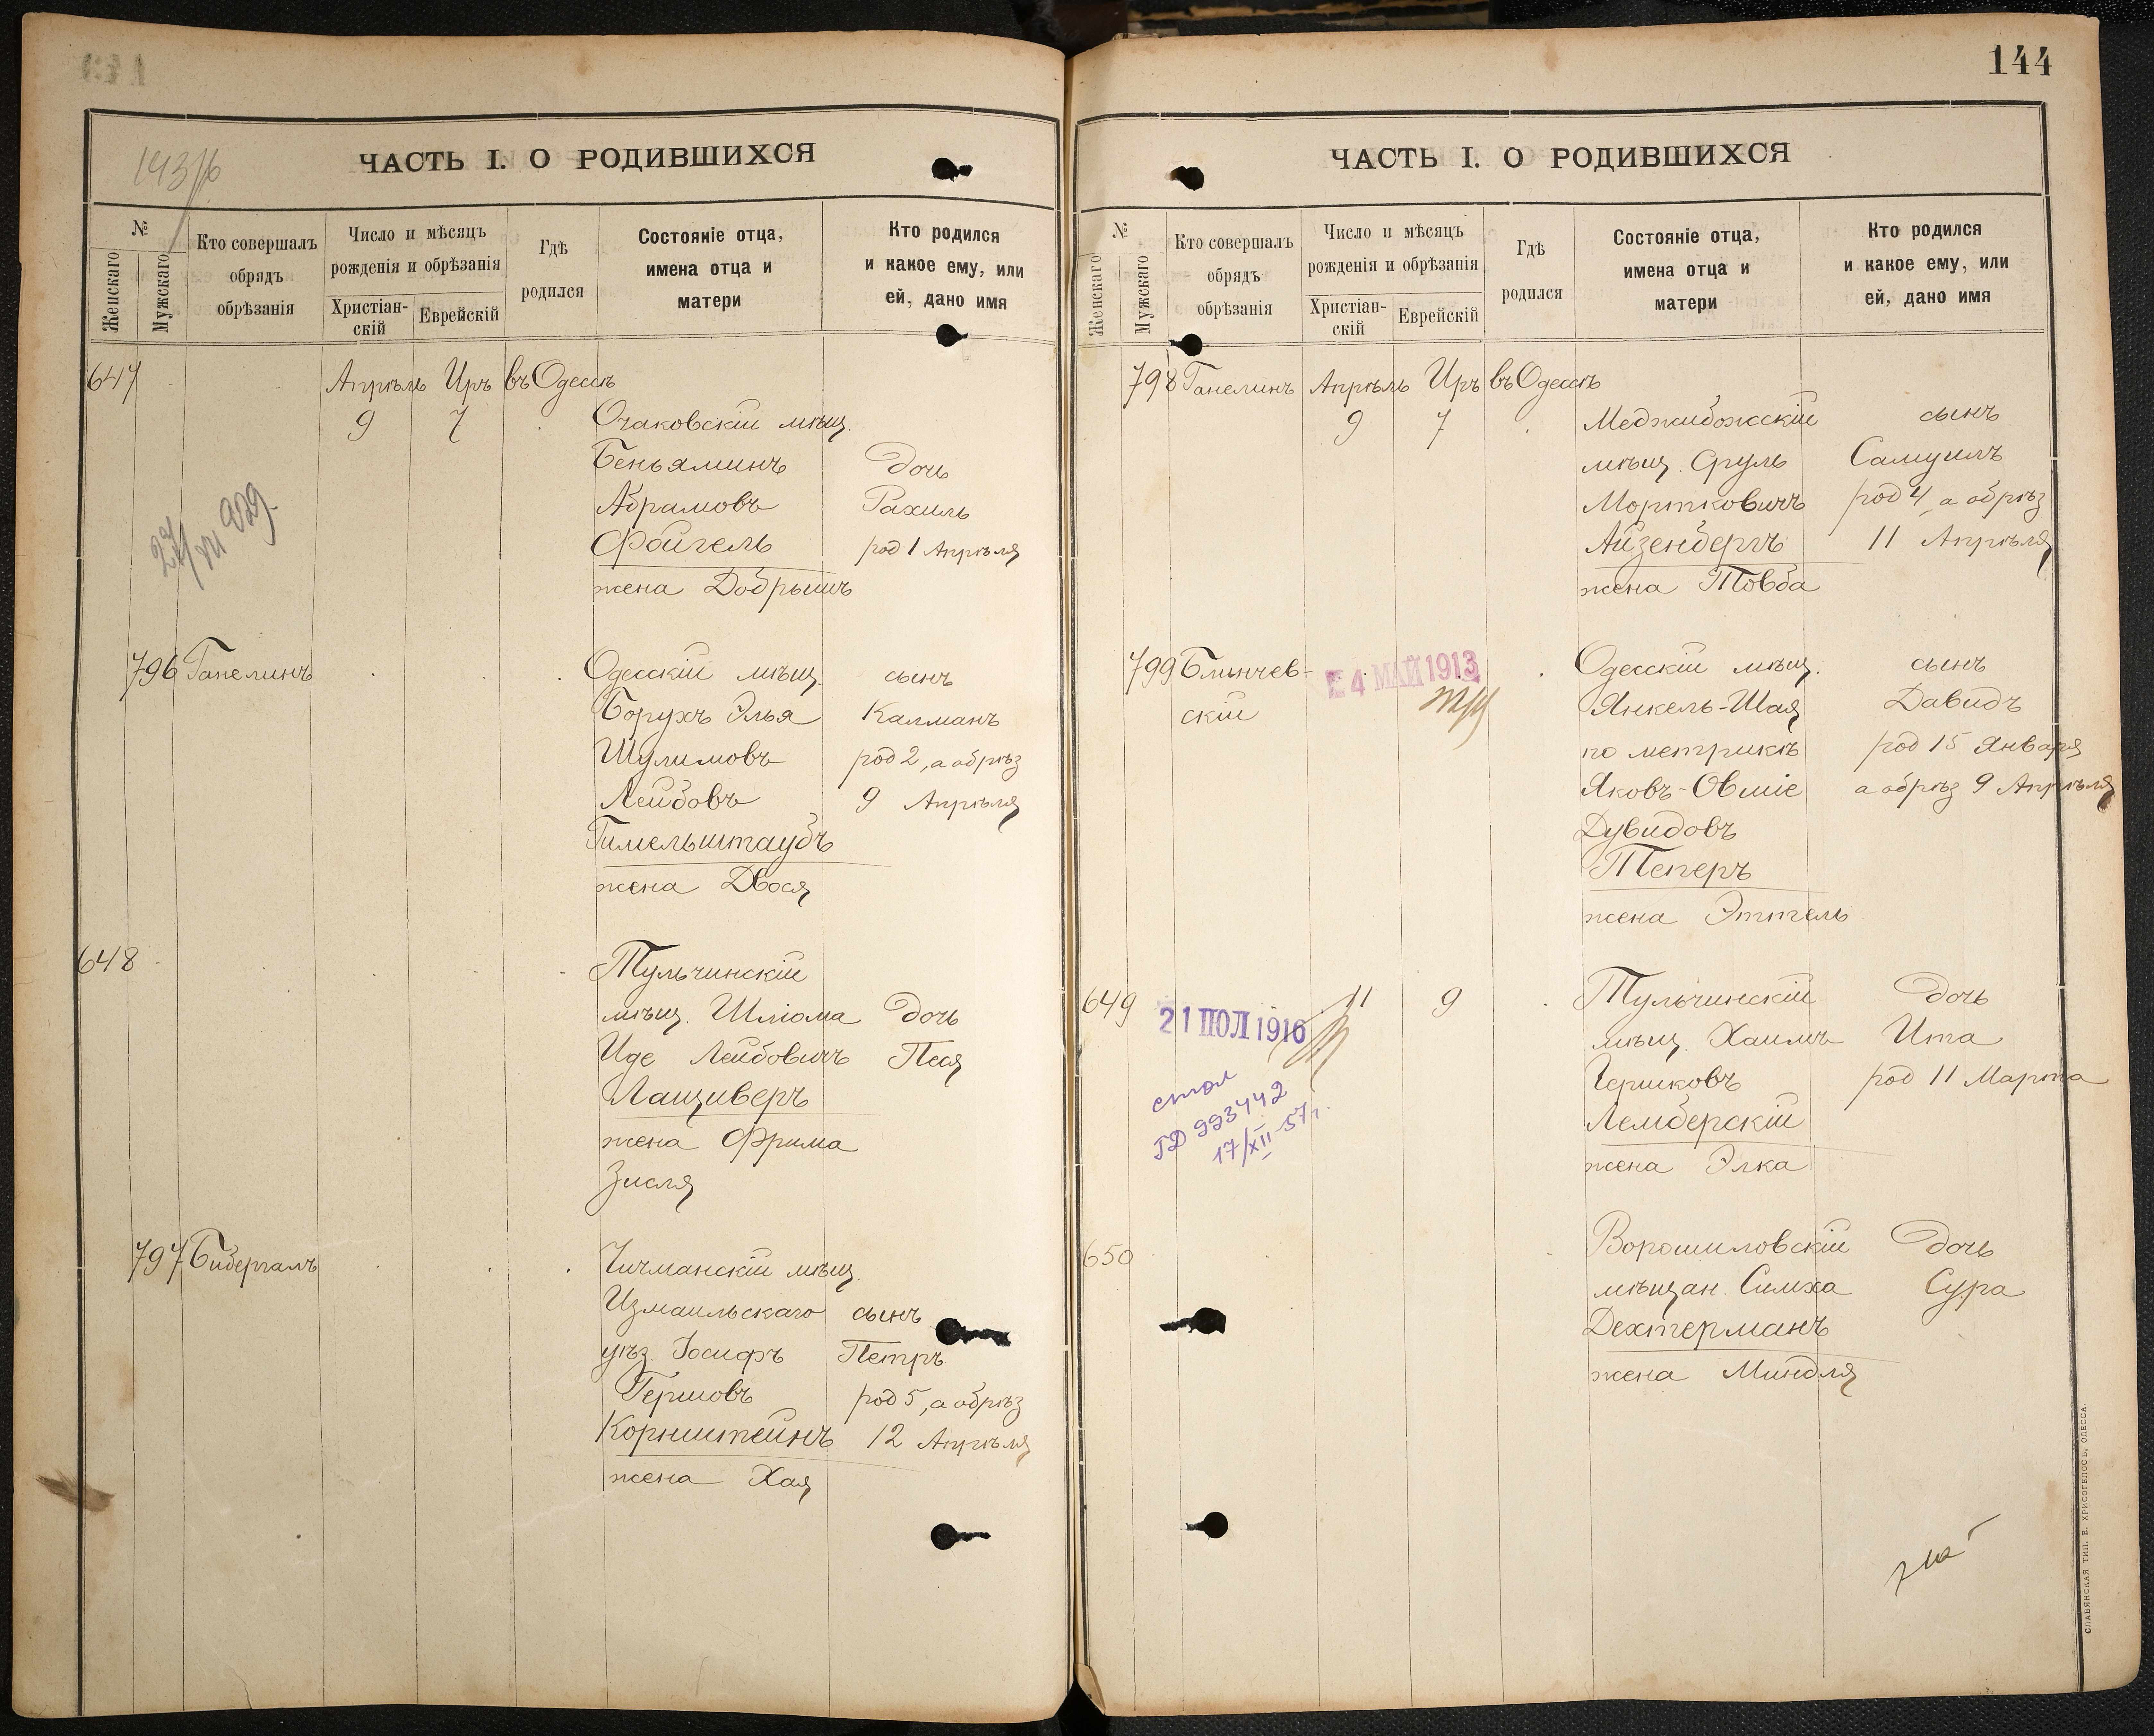 144
ЧАСТЬ I. О РОДИВШИХСЯ
№
Женскаго
Мужскаго
Кто совершалъ
обрядъ
обрѣзанія
Число и мѣсяцъ
рожденія и обрѣзанія
Христіан-
скій
Еврейскій
Гдѣ
родился
Состояніе отца,
имена отца и
матери
Кто родился
и какое ему, или
ей, дано имя
647 Апрѣль Иръ въ Одессѣ
9 7 Очаковскій мѣщ.
Беньяминъ дочь
Абрамовъ Рахиль
Фойгель род 1 Апрѣля
жена Добрышъ
796 Ганелинъ Одесскій мѣщ. сынъ
Борухъ Элья Калманъ
Шулимовъ род 2, а обрѣз
Лейбовъ 9 Апрѣля
Гимельштаубъ
жена Двося
648 Тульчинскій
мѣщ. Шлiома дочь
Иде Лейбовичъ Песя
Лащиверъ
жена Фрима
Зисля
797 Бибергалъ Чичманскій мѣщ.
Измаильскаго сынъ
уѣз. Іосифъ Петръ
Гершовъ род 5, а обрѣз
Корнштейнъ 12 Апрѣля
жена Хая
ЧАСТЬ I. О РОДИВШИХСЯ
№
Женскаго
Мужскаго
Кто совершалъ
обрядъ
обрѣзанія
Число и мѣсяцъ
рожденія и обрѣзанія
Христіан-
скій
Еврейскій
Гдѣ
родился
Состояніе отца,
имена отца и
матери
Кто родился
и какое ему, или
ей, дано имя
798 Ганелинъ Апрѣль Иръ въ Одессѣ
9 7 Меджибожскій сынъ
мѣщ. Сруль Самуилъ
Мортковичъ род 4, а обрѣз
Айзенбергъ 11 Апрѣля
жена Товба
799 Блинчев- Одесскій мѣщ. сынъ
скій 24 МАЙ 1913 Янкель-Шая Давидъ
по метрикѣ род 15 Января
Яковъ-Овшіе а обрѣз 9 Апрѣля
Дувидовъ
Теперъ
жена Эттель
649 11 9 Тульчинскій дочь
21 ІЮЛ 1916
мѣщ. Хаимъ Ита
Гершковъ род 11 Марта
Лемберскій
жена Элка
стол
ГД 993442
17/XII-57г.
650 Ворошиловскій дочь
мѣщан. Симха Сура
Дехтерманъ
жена Миндля
СЛАВЯНСКАЯ ТИП. Е. ХРИСОГЕЛОСЪ, ОДЕССА.